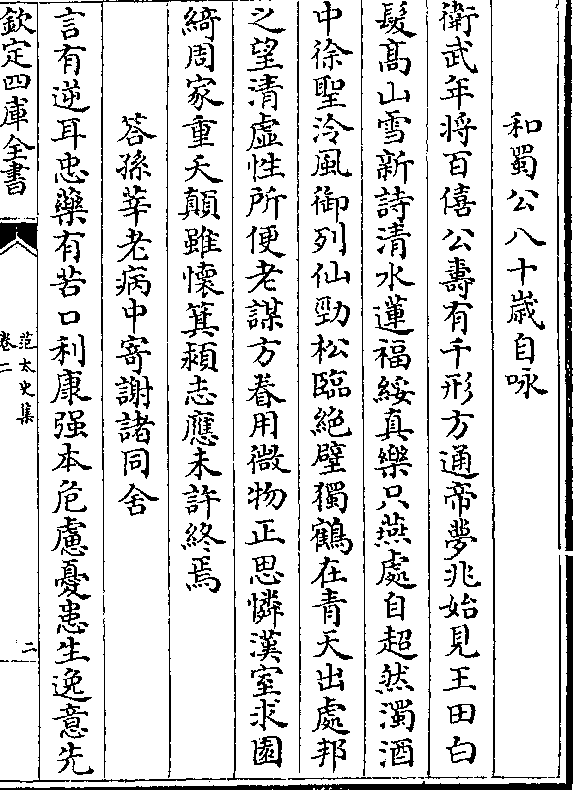 和蜀公八十歲自咏
衛武年將百僖公壽有千形方通帝夢兆始見王田白
髮高山雪新詩清水蓮福綏真樂只燕處自超然濁酒
中徐聖泠風御列仙勁松臨絶壁獨鶴在青天出處邦
之望清虚性所便老謀方眷用微物正思憐漢室求園
綺周家重夭顛雖懷箕潁志應未許終焉
答孫莘老病中寄謝諸同舍
言有逆耳忠藥有苦口利康强本危慮憂患生逸意先
欽定四庫全書
范太史集
卷二
二